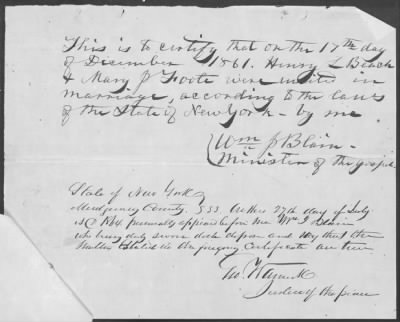 This is to certify that on the 17th day
of December 1861. Henry L Beach
& Mary J Foote were united in
marriage, according to the laws
of the State of New York - by me
Wm J Blain -
Minister of the gospel
State of New York
Montgomery County } SS. On this 27th day of July
AD 1864 personally appeared before me Wm J Blain
who being duly sworn doth depose and say that the
matters stated in foregoing Certificate are true
Justice of the peace